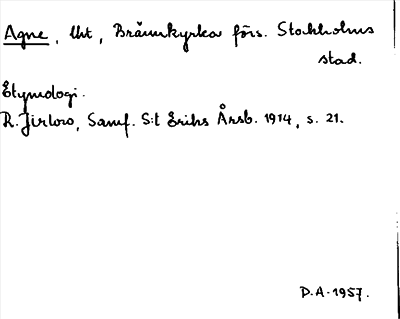 Agne, lht, Brännkyrka förs. Stockholms
stad.
Etymologi.
R. Jirlow, Samf. S:t Eriks Årsb. 1914, s. 21.
D.A. 1957.